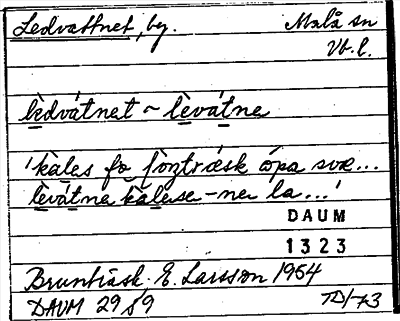 Ledvattnet, by. Malå sn
Vb. l.
lèdvátnet ~ lèvátne
'kàles fo
lèvátne kàlese - ner la...'
DAUM
1323
Brunträsk. E. Larsson 1964
DAUM 2989 TD/-73